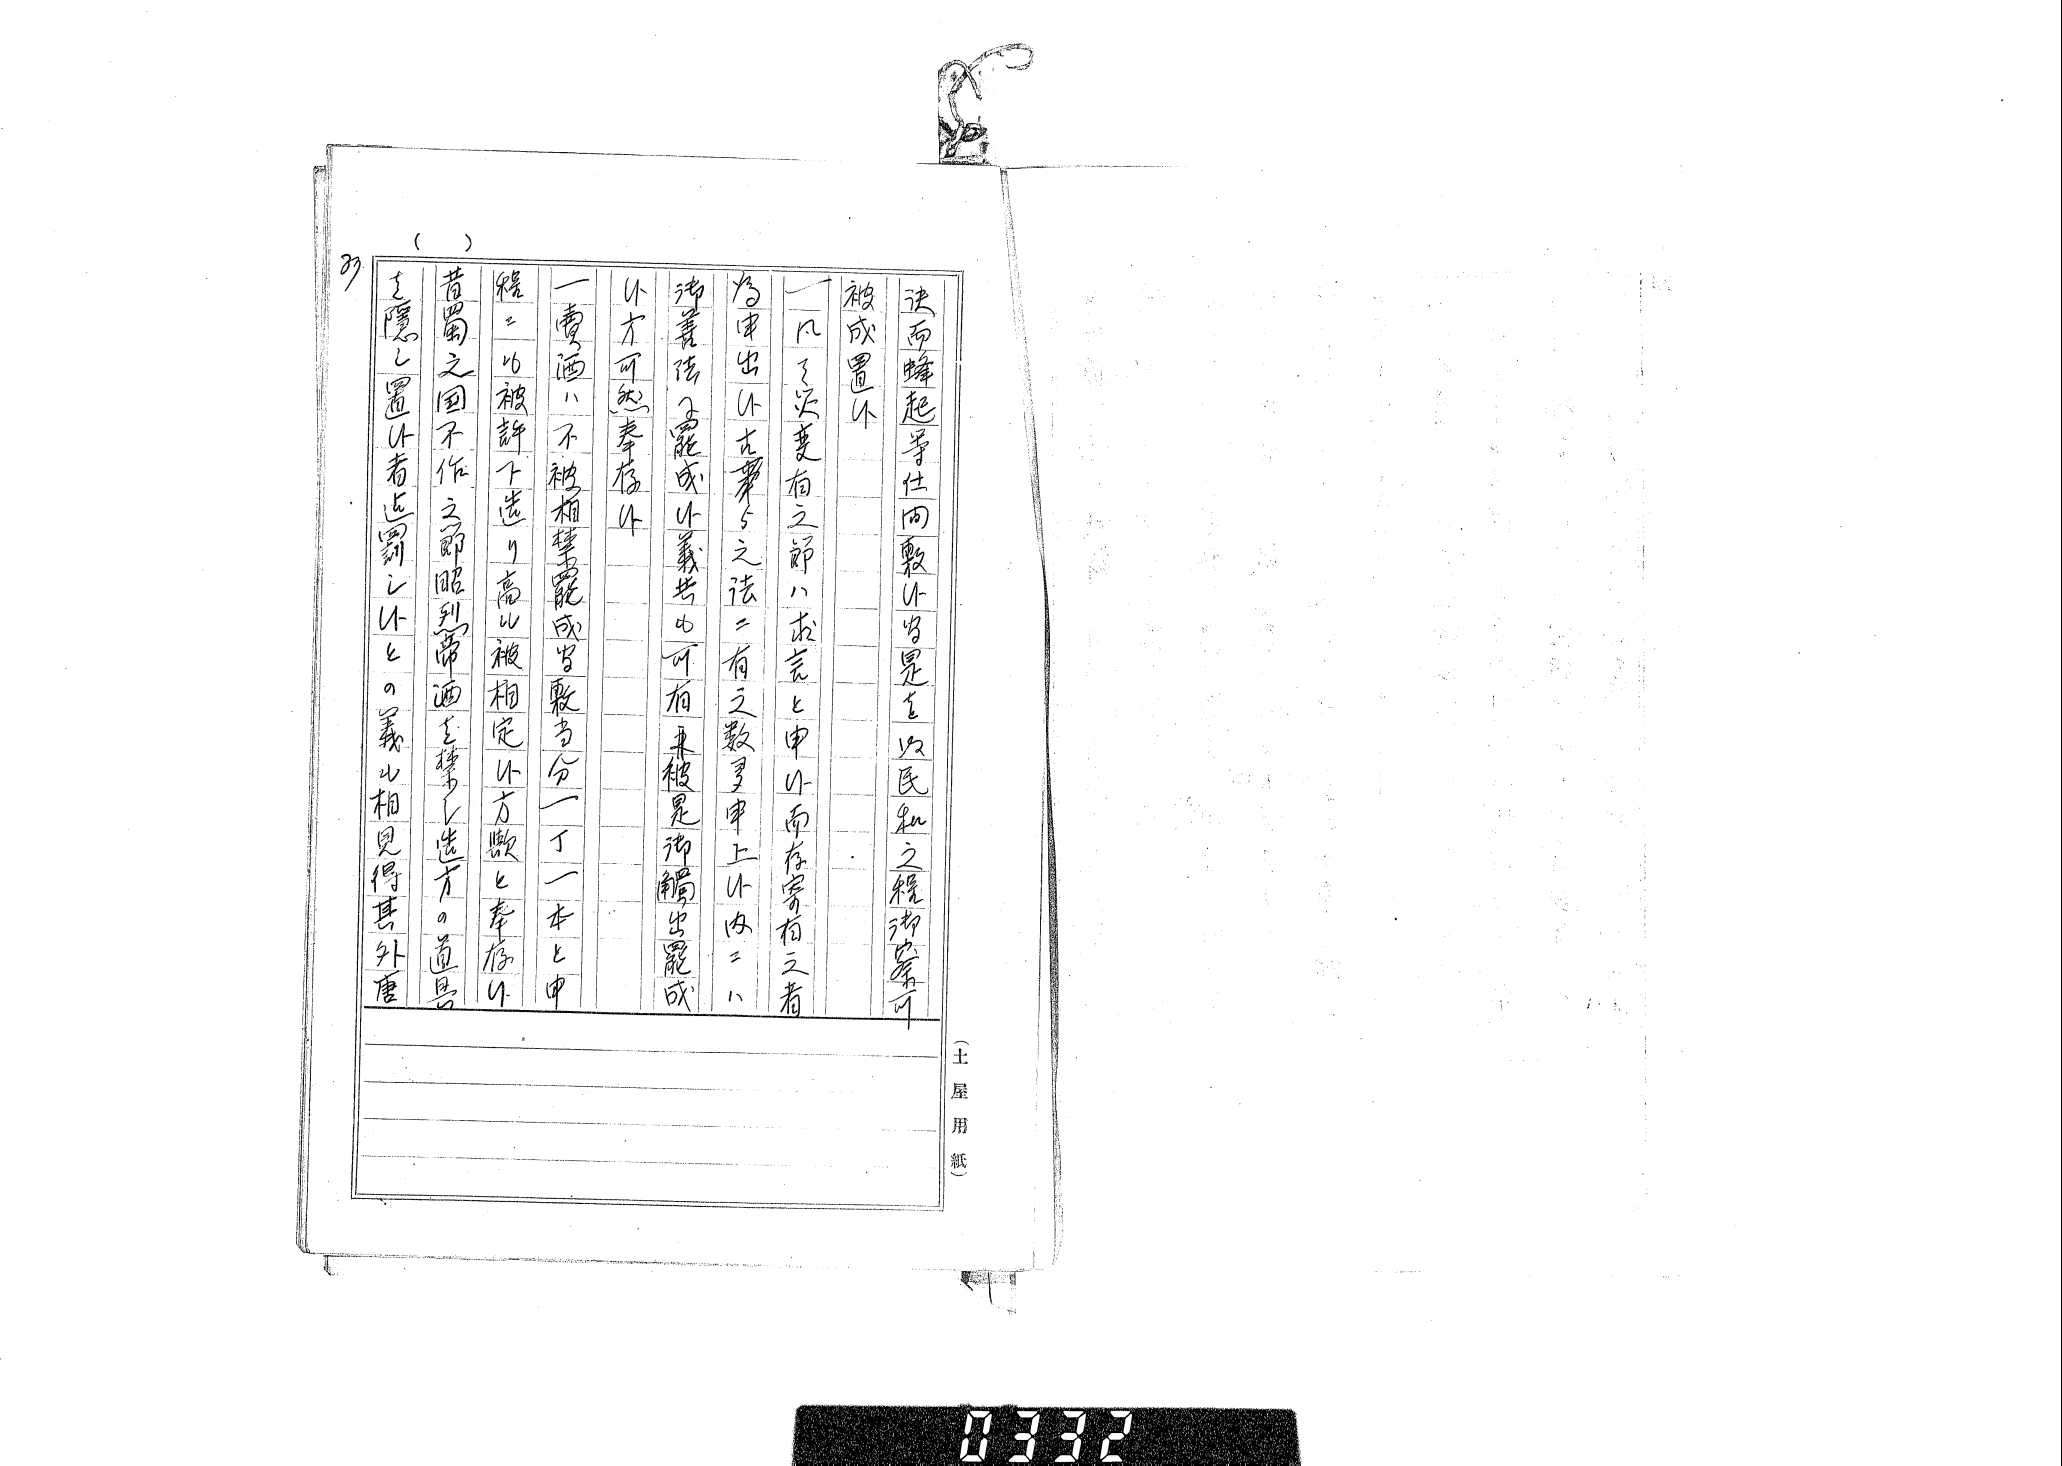 決而蜂起等仕間敷候間是を以民和之程御察可
被成置候
一凡て災変有之節ハ求言と申候而存寄有之者
為申出候古来ゟ之法ニ有之数多申上候内ニハ
御善法ニ罷成候義共も可有来被是御触出罷成
候方可然奉存候
一売酒ハ不被相禁罷成間敷当分一丁一本と申
程ニも被許下造り高も被相定候方歟と奉存候
昔蜀之国不作之節昭烈帝酒を禁し造方の道具
を隠し置候者迄罰し候との義も相見得其外唐
( )
(土屋用紙)
0332